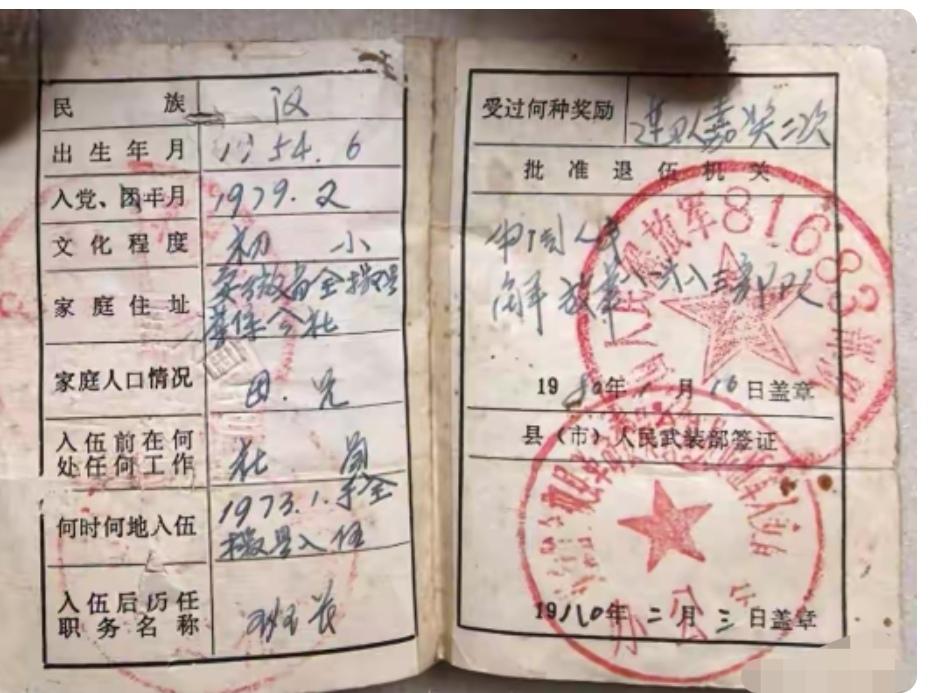 民族 汉
出生年月 1954.6
入党、团年月 1979.2
文化程度 初小
家庭住址 安徽省全椒县
公社
家庭人口情况 母.兄
入伍前在何
处任何工作 社员
何时何地入伍 1973.1.于全
椒县入伍
入伍后历任
职务名称 班长
受过何种奖励 连队嘉奖二次
批准退伍机关
中国人民
解放军八一六八三部队
人民解放军81683部队
1980年1月16日盖章
县(市)人民武装部签证
办公
1980年二月三日盖章